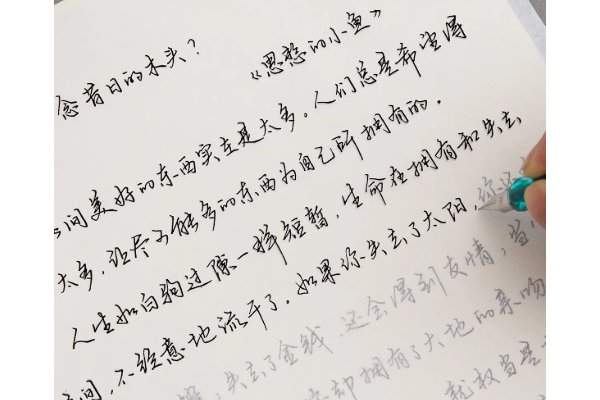 念昔日的木头？ 《思想的小鱼》
间美好的东西实在是太多，人们总是希望得
太多，让尽可能多的东西为自己所拥有的。
人生如白驹过隙一样短暂，生命在拥有和失去
间，不经意地流干了。如果你失去了太阳，你还
失去了金钱，还会得到友情；当
却拥有了大地的亲吻
就权当是